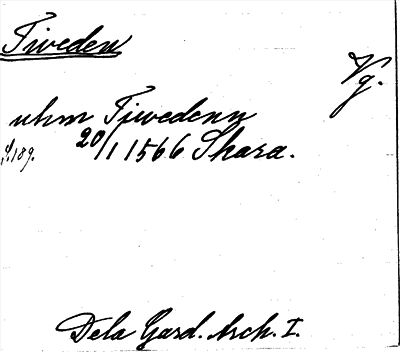 Tiveden
Vg.
uhm Tjwedenn
S.189. 20/1 1566 Skara.
Dela Gard. Arch. I.